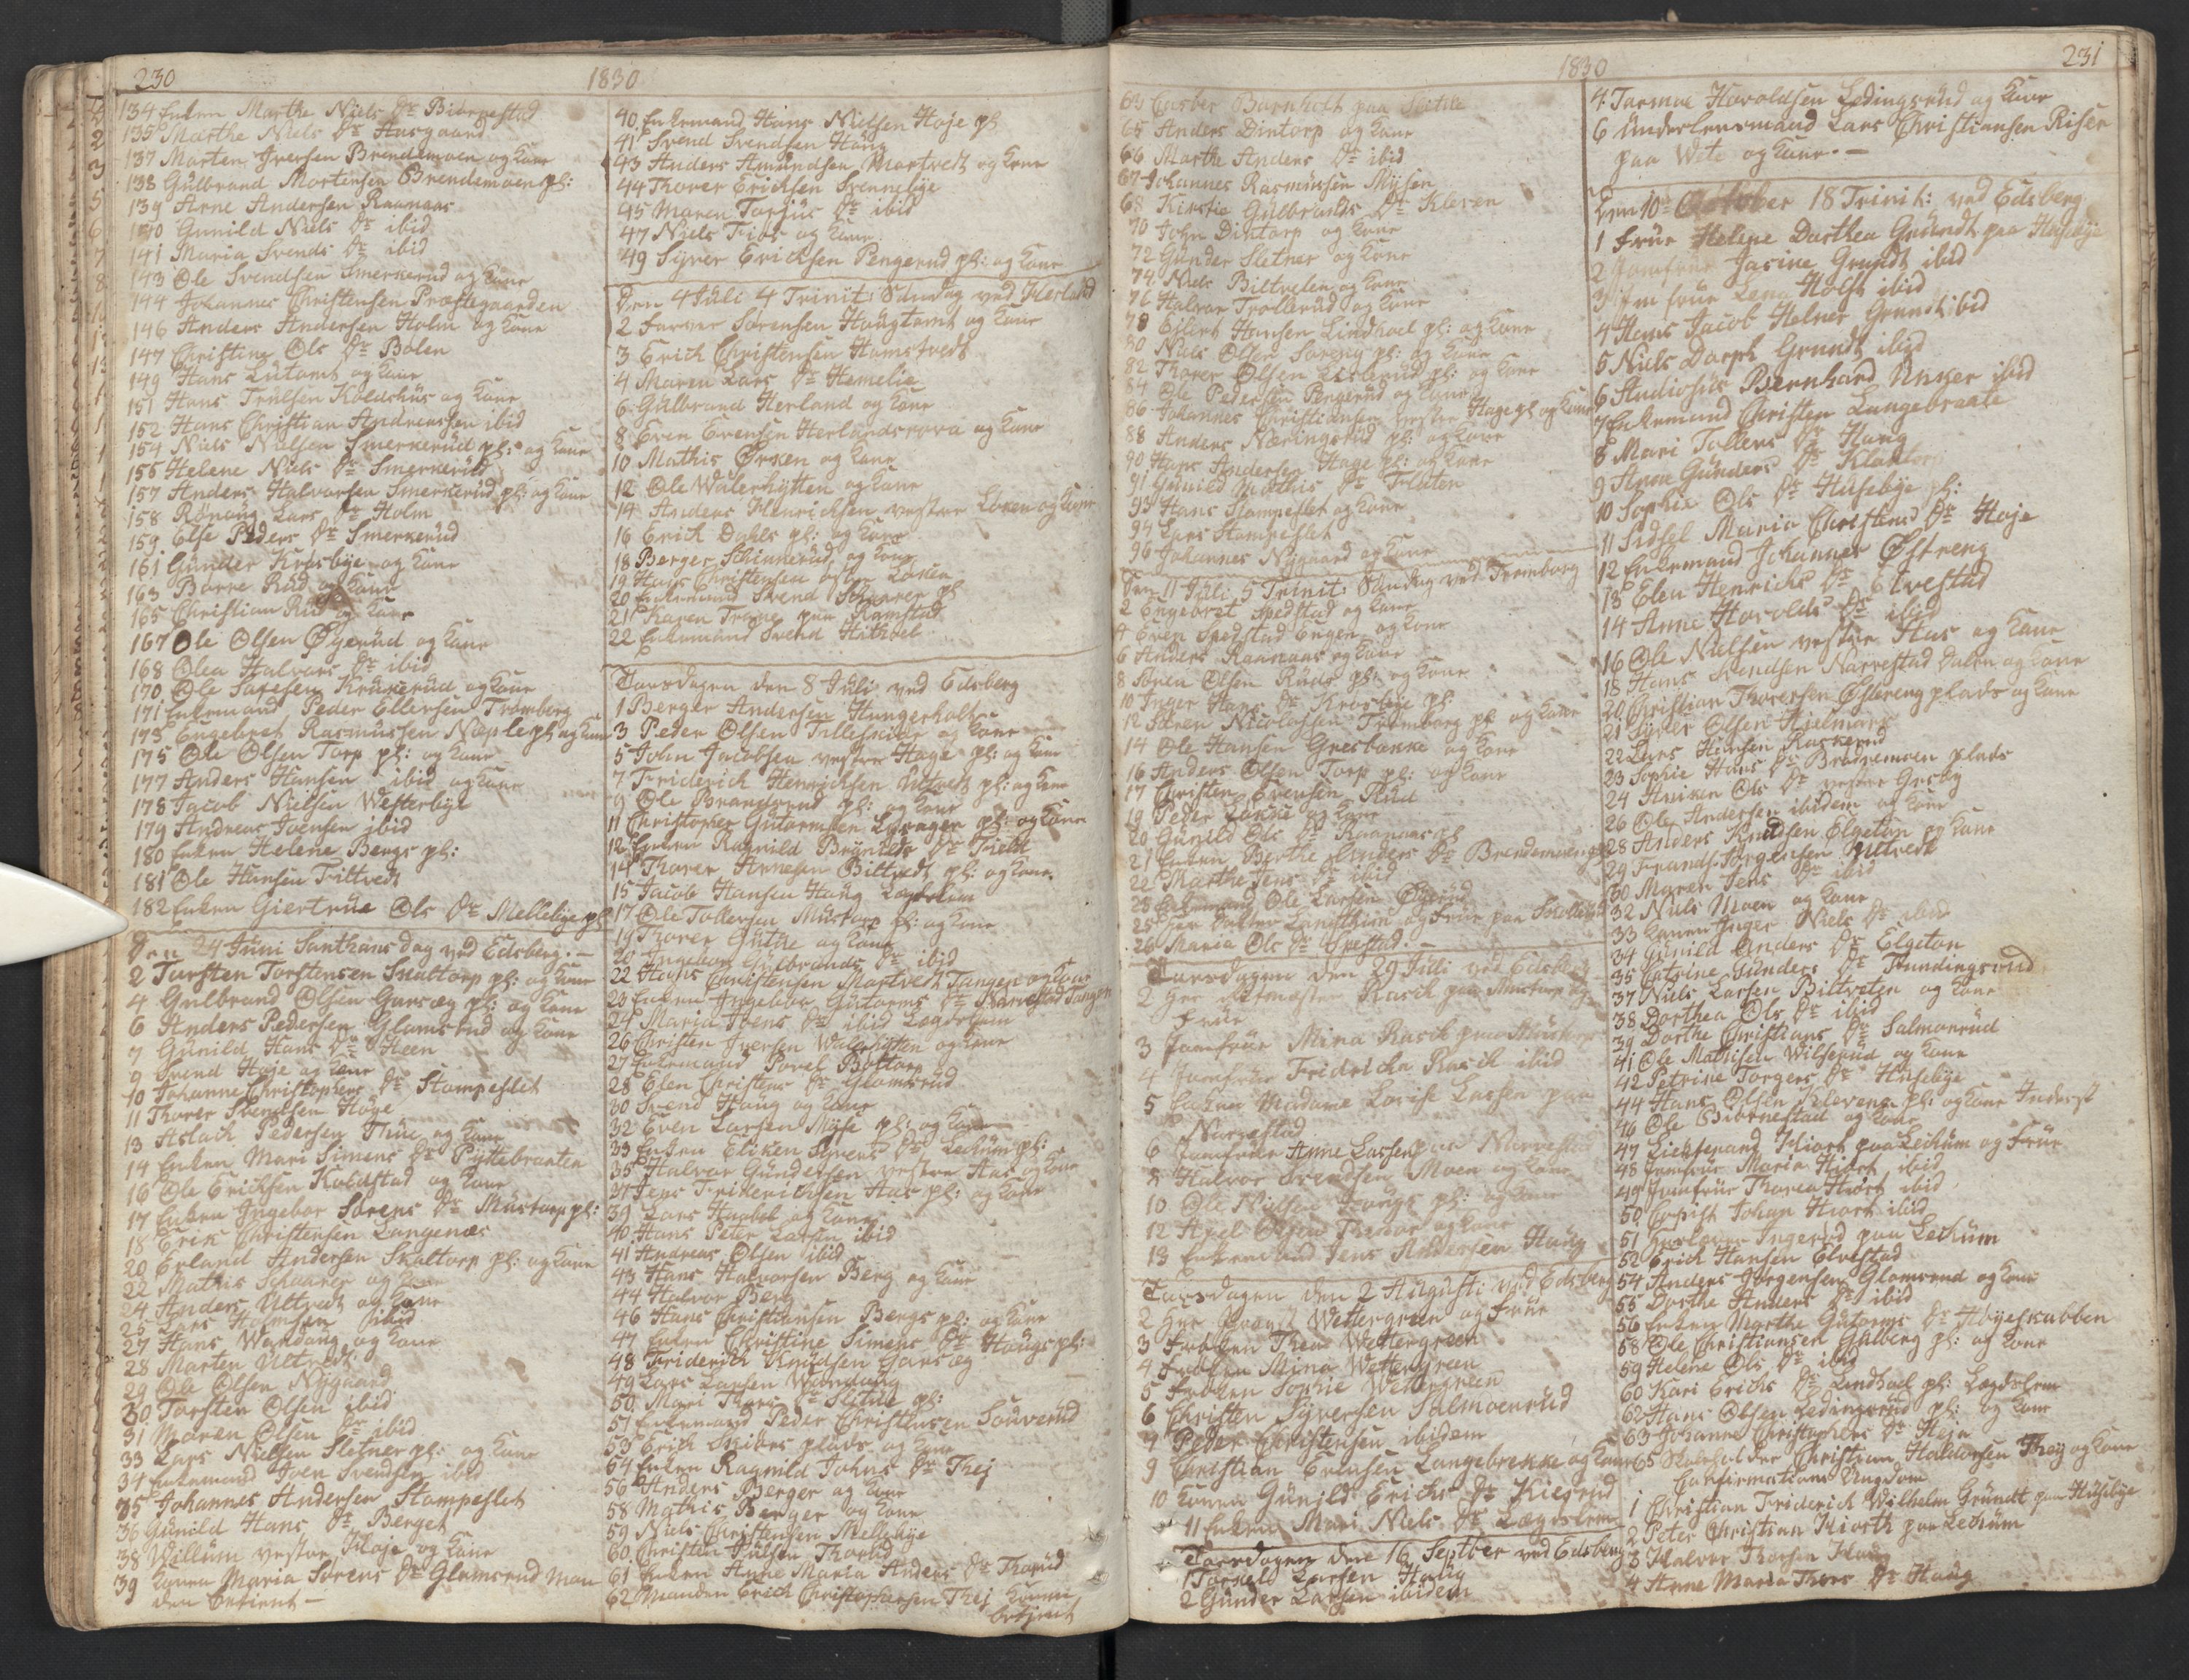 230
1830
134 Enken Marthe Niels Dr Biørnestad
135 Marthe Niels Dr Aasgaard
137 Morten Iversen Brendemoen og Kone
138 Gulbrand Mortensen Brendemoen pl:
139 Arne Andersen Raanaas
140 Gunild Niels Dr ibid
141 Maria Svends Dr ibid
143 Ole Svendsen Smerkerud og Kone
144 Johannes Christensen Præstegaarden
146 Anders Andersen Holm og Kone
147 Christine Ols Dr Bolen
149 Hans Lutomt og Kone
151 Hans Trulsen Koldshus og Kone
152 Hans Christian Andreassen ibid
154 Niels Nielsen Smerkerud pl: og Kone
155 Helene Niels Dr Smerkerud
157 Anders Halvorsen Smerkerud pl: og Kone
158 Rønnug Lars Dr Holm
159 Else Peders Dr Smerkerud
161 Gunder Krosbye og Kone
163 Børre Rud og Kone
165 Christian Rud og Kone
167 Ole Olsen Øgerud og Kone
168 Olea Halvors Dr ibid
170 Ole Krukerud og Kone
171 Enkemand Peder Ellefsen Tromberg
173 Engebret Rasmussen Næple pl: og Kone
175 Ole Olsen Torp pl: og Kone
177 Anders Hansen ibid og Kone
178 Jacob Nielsen Westerbye
179 Andreas Joensen ibid
180 Enken Helene Bergs pl:
181 Ole Hansen Tiltvedt
182 Enken Giertrue Ols Dr Mellebye pl
Den 24 Juni Santhans dag ved Edsberg.
2 Torsten Torstensen Skaltorp pl: og Kone
4 Gulbrand Olsen Garsæg pl: og Kone
6 Anders Pedersen Glomsrud og Kone
7 Gunild Hans Dr Heen
9 Svend Høje og Kone
10 Johanne Christophers Dr Stampeslet
11 Thorer Svendsen Høye
13 Aslach Pedersen Thue og Kone
14 Enken Mari Simens Dr Pyttebraaten
16 Ole Erichsen Koldstad og Kone
17 Enken Ingebor Sørens Dr Mustorp pl:
18 Erik Christensen Langenæs
20 Erland Andersen Skaltorp pl: og Kone
22 Mathis Schaarer og Kone
24 Anders Ultvedt og Kone
25 Lars Holmsen ibid
27 Hans Wandang og Kone
28 Morten Ultvedt
29 Ole Olsen Nygaard
30 Torsten Olsen ibid
31 Maren Olsen Dr ibid
33 Lars Nielsen Sletner pl: og Kone
34 Enkemand Joen Svendsen ibid
35 Johannes Andersen Stampeslet
36 Gunild Hans Dr Berget
38 Willum vestre Høje og Kone
39 Konen Maria Sørens Dr Glomsrud Man
den betient —
40 Enkemand Hans Nielsen Høje pl
41 Svend Svendsen Haug
43 Anders Amundsen Mortvedt og Kone
44 Thorer Erichsen Svennebye
45 Maren Torjus Dr ibid
47 Niels Friis og Kone
49 Syver Erichsen Pengerud pl: og Kone
Den 4 Juli 4 Trinit: Søndag ved Herland
2 Farver Sørensen Haugtomt og Kone
3 Erich Christensen Homstvedt
4 Maren Lars Dr Hemelie
6 Gulbrand Herland og Kone
8 Even Evensen Herlandsrova og Kone
10 Mathis Ørken og Kone
12 Ole Walerhytten og Kone
14 Anders Henrichsen vestre Løken og Kone
16 Erich Dahls pl: og Kone
18 Berger Skinnerud og Kone
19 Hans Christensen østre Løken
20 Enkemand Svend Schaarer pl
21 Karen Trone paa Ramstad
22 Enkemand Svend Hitibel
Torsdagen den 8 Juli ved Edsberg
1 Berger Andersen Hungerholt
3 Peder Olsen Lillesiide og Kone
5 John Jacobsen vestre Hage pl: og Kone
7 Friderich Henrichsen Ultvedt pl: og Kone
9 Ole Brangsrud pl: og Kone
11 Christopher Gutormsen Løvager pl: og Kone
12 Enken Ragnild Brynilds Dr Tvedt
14 Thorer Arnesen Biltvedt pl: og Kone
15 Jacob Hansen Haug Lægdslem
17 Ole Tollersen Mustorp pl: og Kone
19 Thorer Guthe og Kone
20 Ingebor Gulbrands Dr ibid
22 Hans Christensen Mortvedt Tangen og Kone
23 Enken Ingebor Gutorms Dr Narvestad Tangen
24 Maria Joens Dr ibid Lægdslem
26 Christen Iversen Walerhytten og Kone
27 Enkemand Povel Bøttorp
28 Elen Christens Dr Glomsrud
30 Svend Haug og Kone
32 Even Larsen Myse pl: og Kone
33 Enken Eliken Syvers Dr Lechum pl:
35 Halvor Gundersen vestre Aas og Kone
37 Jens Friderichsen Aas pl: og Kone
39 Lars Haabøl og Kone
40 Hans Peter Larsen ibid
41 Andreas Olsen ibid
43 Hans Halvorsen Berg og Kone
44 Halvor Berg
46 Hans Christiansen Bergs pl: og Kone
47 Enken Christine Simens Dr Haugs pl:
48 Friderich Knudsen Garsæg
49 Lars Larsen Wandang
50 Mari Thors Dr Slitue pl:
51 Enkemand Peder Christensen Souverud
53 Erich Skiørs plads og Kone
54 Enken Ragnild Johns Dr Thej
56 Anders Berger og Kone
58 Mathis Berger og Kone
59 Niels Christensen Mellebye
60 Christen Pulsen Thorud
61 Enken Anne Maria Anders Dr Thorud
62 Manden Erich Christophersen Thej Konen
betjent
1830
231
64 Corber Barnholt paa Slitue
65 Anders Dintorp og Kone
66 Marthe Anders Dr ibid
67 Johannes Rasmussen Mysen
68 Kirstie Gulbrands Dr Kleven
70 John Dintorp og Kone
72 Gunder Sletner og Kone
74 Niels Biltvelen og Kone
76 Halvor Trollerud og Kone
78 Ellert Hansen Lindhoel pl: og Kone
80 Niels Olsen pl: og Kone
82 Thorer Olsen pl: og Kone
84 Ole Pedersen Pengerud og Kone
86 Johannes Christiansen vestre Hage pl og Kone
88 Anders Næringsrud pl: og Kone
90 Hans Andersen Hage pl: og Kone
91 Gunild Mathis Dr Flaten
93 Hans Stampeslet og Kone
94 Lars Stampeslet
96 Johannes Nygaard og Kone
Den 11 Juli 5 Trinit: Søndag ved Tromborg
2 Engebret Spedstad og Kone
4 Even Spedstad Eugen og Kone
6 Anders Raanaas og Kone
8 Søren Olsen Ruds pl: og Kone
10 Inger Hans Dr Krosbye pl
12 Søren Nicolajsen Tromborg pl og Kone
14 Ole Hansen Gresbanke og Kone
16 Anders Olsen Torp pl: og Kone
17 Christen Evensen Rud
19 Peder og Kone
20 Gunild Ols Dr Raanaas pl
21 Enken Berthe Anders Dr Brendemoen pl
22 Marthe Jens Dr ibid
23 Enkemand Ole Larsen Øgerud
25 Her og Frue paa
26 Maria Ols Dr Ivestad. —
Torsdagen den 29 Juli ved Edsberg
2 Her Ritmæster Rasch paa Mustorp og
Frue
3 Jomfrue Mina Rasch paa Mustorp
4 Jomfrue Fridricha Rasch ibid
5 Enken Madame Lovise Lassen paa
Narvestad
6 Jomfrue Anne Lassen paa Narvestad
8 Halvor Svendsen Moen og Kone
10 Ole Nielsen Haugs pl: og Kone
12 Axel Olsen og Kone
13 Enkemand Jens Andersen Haug
Torsdagen den 2 Augusti ved Edsberg
2 Her Provst Wettergreen og Frue
3 Frøken Thea Wettergreen
4 Frøken Mina Wettergreen
5 Frøken Sophie Wettergreen
6 Christen Syversen Salmonrud
7 Peder Christensen ibidem
9 Christian Evensen Langebrekke og Kone
10 Konen Gunild Erichs Dr Kiesrud
11 Enken Mari Niels Dr Lægdslem
Torsdagen den 16 Septber ved Edsberg
1 Torkeld Larsen Haug
2 Gunder Larsen ibidem
4 Tormoe Haroldsen Ledingsrud og Kone
6 Underlensmand Lars Christiansen Risen
paa Wete og Kone. —
Den 10de October 18 Trinit: ved Edsberg
1 Frue Helene Dorthea Grundt paa Husebye
2 Jomfrue Jasine Grundt ibid
3 Jomfrue Lena Holst ibid
4 Hans Jacob Helner Grundt ibid
5 Niels Dorph Grundt ibid
6 Studiosus Bernhard Unker ibid
7 Enkemand Christen Langebraate
8 Mari Tollens Dr Haug
9 Anne Gunders Dr
10 Sophie Ols Dr Husebye pl:
11 Sidsel Maria Christens Dr Høje
12 Enkemand Johannes Østreng
13 Elen Henrichs Dr Elvestad
14 Anne Harolds Dr ibid
16 Ole Nielsen vestre Aas og Kone
18 Hans Svendsen Narvestad Dalen og Kone
20 Christian Thorersen Østereng plads og Kone
21 Syver Olsen Hielmark
22 Lars Hansen Raskerud
23 Sophie Hans Dr Brødremoen plads
24 Aniken Ols Dr vestre Gresby
26 Ole Andersen ibidem og Kone
28 Anders Knudsen Elgetun og Kone
29 Frands Jørgensen Ultvedt
30 Maren Jens Dr ibid
32 Niels Moen og Kone
33 Konen Inger Niels Dr ibid
34 Gunild Anders Dr Elgeton
35 Catrine Gunders Dr Hundingsrud
37 Niels Larsen Biltvelen og Kone
38 Dorthea Ols Dr ibid
39 Dorthe Christians Dr Salmonrud
41 Ole Mathisen Wilserud og Kone
42 Petrine Torgers Dr Husebye
44 Hans Olsen Klevens pl: og Kone Inderst
46 Ole Biørnestad og Kone
47 Liestenant Hiort paa Lechum og Frue
48 Jomfrue Maria Hiort ibid
49 Jomfrue Thorea Hiort ibid
50 Copist Johan Hiort ibid
51 Huslærer Ingerød paa Lechum
52 Erich Hansen Elvestad
54 Anders Jørgensen Glomsrud og Kone
55 Dorthe Anders Dr ibid
56 Enken Marthe Gutorms Dr Høyeskubben
58 Ole Christiansen Gulberg pl: og Kone
59 Helene Ols Dr ibid
60 Kari Erichs Dr Lindhoel pl: Lægdslem
62 Hans Olsen Ledingsrud pl: og Kone
63 Johanne Christophers Dr Heja
65 Skoleholder Christian Haldorsen Thej og Kone
Confirmations Ungdom
1 Christian Friderich Wilhelm Grundt paa Husebye
2 Peter Christian Hiorth paa Lechum
3 Halvor Thorsen Haug
4 Anne Maria Thors Dr Haug